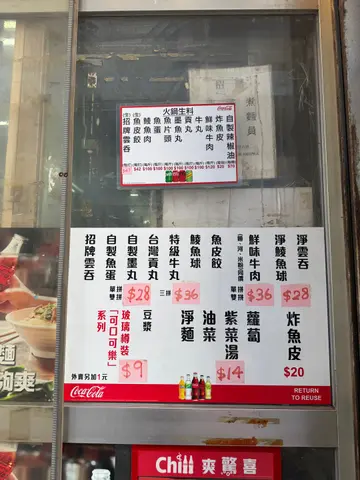 火鍋生料
Coca-Cola
自製辣椒油
炸魚皮
鮮味牛肉
牛丸
貢丸
墨魚丸
魚片頭
魚蛋
鯪魚肉
(生)魚皮餃
(生)招牌雲吞
淨雲吞
淨鯪魚球
$28
鮮味牛肉
單拼
雙拼
$36
魚皮餃
鯪魚球
特級牛丸
三拼
$36
台灣貢丸
自製墨丸
自製魚蛋
招牌雲吞
單拼
雙拼
$28
炸魚皮
$20
蘿蔔
紫菜湯
油菜
淨麵
$14
豆漿
玻璃樽裝
「可口可樂」
系列
$9
外賣另加1元
Coca-Cola
RETURN
TO REUSE
Chill 爽驚喜